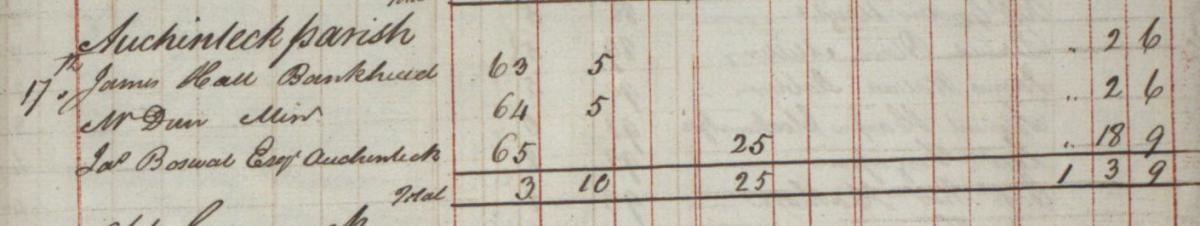 Auchinleck parish
17th James Hall Bankhead 63 5 " 2 6
Mr Dun Minr 64 5 " 2 6
Jas Boswal Esqr Auchenleck 65 25 " 18 9
Total 3 10 25 1 3 9